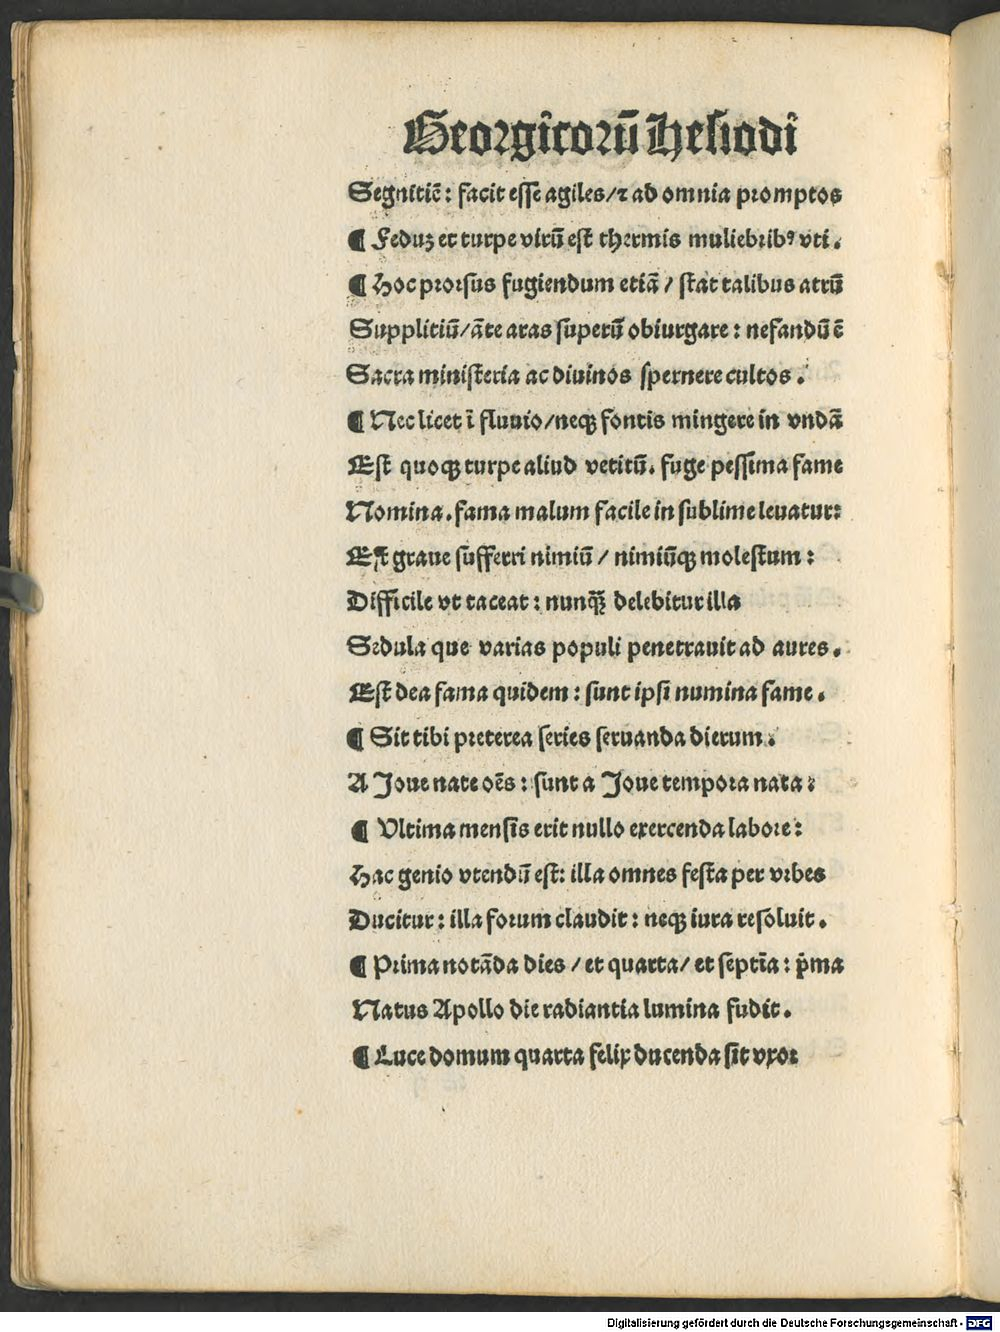 Georgicorū Hesiodi
Segnitiē: facit esse agiles/⁊ ad omnia promptos
¶ Feduꝫ et turpe virū est thermis muliebribꝰ vti.
¶ Hoc prorsus fugiendum etiā / stat talibus atrū
Supplitiū/āte aras superū obiurgare: nefandū ē
Sacra ministeria ac diuinos spernere cultos.
¶ Nec licet ī fluuio/neqꝫ fontis mingere in vndā
Est quoqꝫ turpe aliud vetitū. fuge pessima fame
Nomina. fama malum facile in sublime leuatur:
Est graue sufferri nimiū / nimiūqꝫ molestum:
Difficile vt taceat: nunqꝫ̄ delebitur illa
Sedula que varias populi penetrauit ad aures.
Est dea fama quidem: sunt ipsi numina fame.
¶ Sit tibi preterea series seruanda dierum.
A Joue nate oēs: sunt a Joue tempora nata:
¶ Vltima mensis erit nullo exercenda labore:
Hac genio vtendū est: illa omnes festa per vrbes
Ducitur: illa forum claudit: neqꝫ iura resoluit.
¶ Prima notāda dies / et quarta/ et septīa: p̄ma
Natus Apollo die radiantia lumina fudit.
¶ Luce domum quarta felix ducenda sit vxor
Digitalisierung gefördert durch die Deutsche Forschungsgemeinschaft - DFG